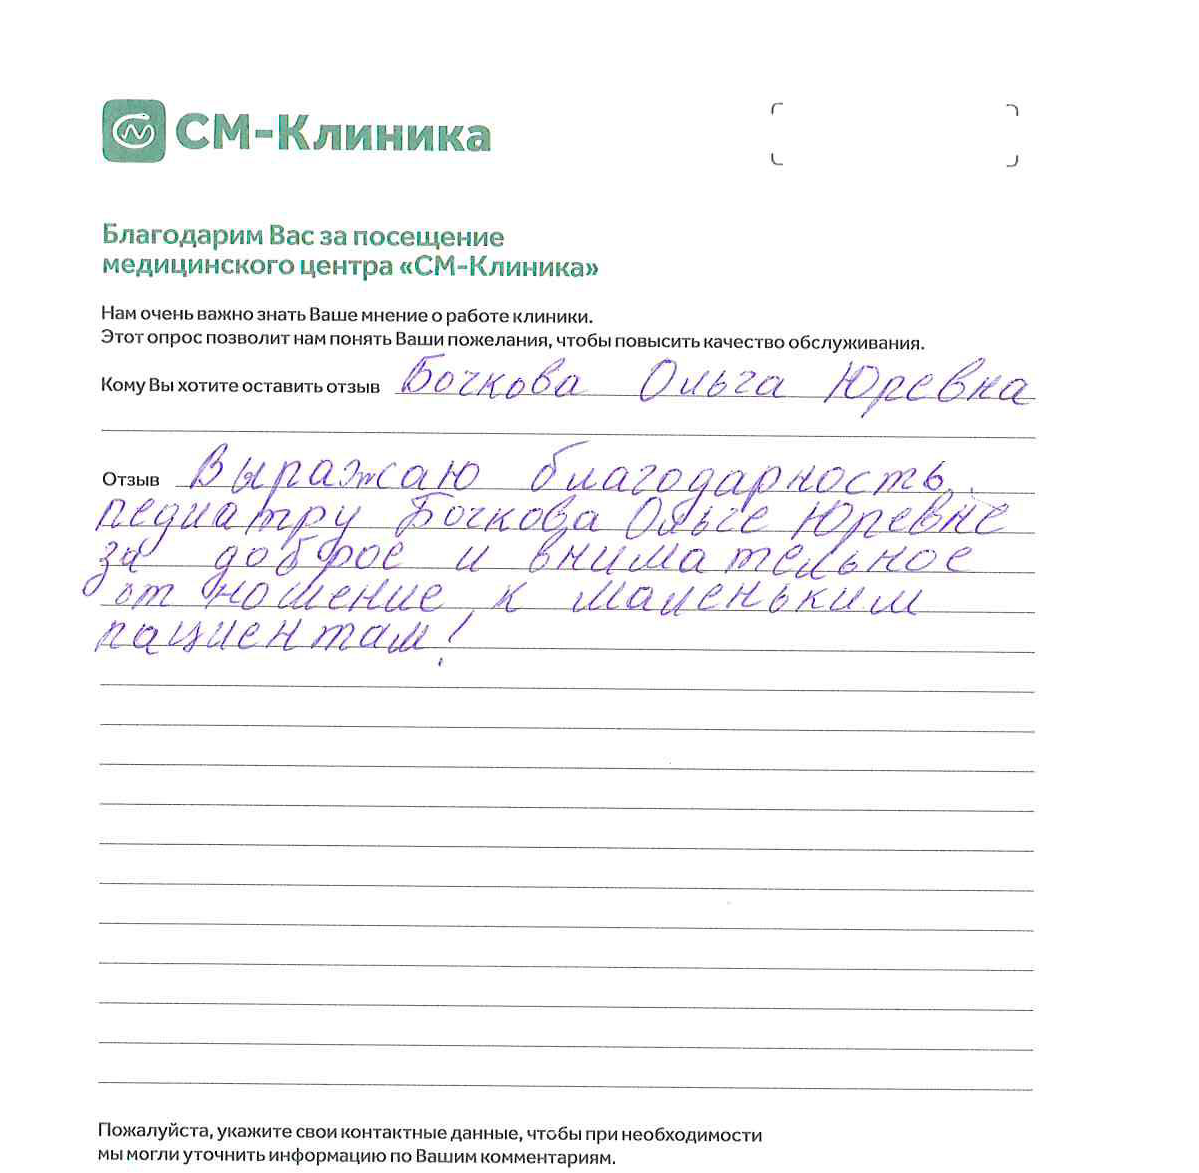 СМ-Клиника
Благодарим Вас за посещение
медицинского центра «СМ-Клиника»
Нам очень важно знать Ваше мнение о работе клиники.
Этот опрос позволит нам понять Ваши пожелания, чтобы повысить качество обслуживания.
Кому Вы хотите оставить отзыв Бочкова Ольга Юревна
Отзыв Выражаю благодарность
педиатру Бочкова Ольге Юревне
за доброе и внимательное
отношение к маленьким
пациентам!
Пожалуйста, укажите свои контактные данные, чтобы при необходимости
мы могли уточнить информацию по Вашим комментариям.